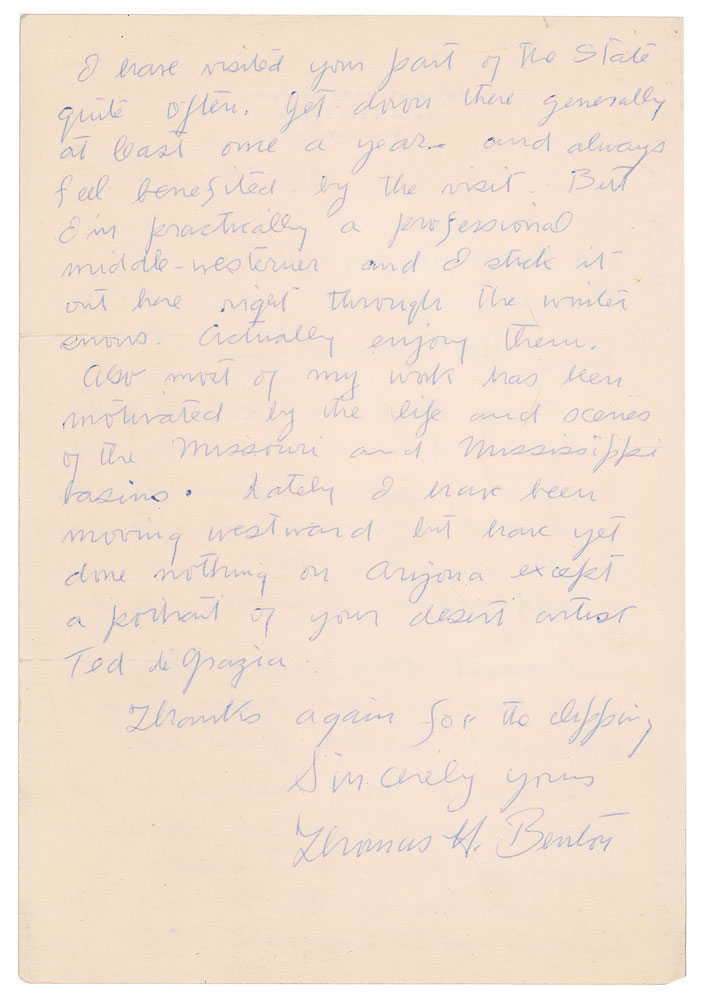 I have visited your part of the State
quite often. Get down there generally
at least once a year - and always
feel benefited by the visit. But
I'm practically a professional
middle-westerner and I stick it
out here right through the winter
snows. Actually enjoy them.
Also most of my work has been
motivated by the life and scenes
of the Missouri and Mississippi
basins. Lately I have been
moving westward but have yet
done nothing on Arizona except
a portrait of your desert artist
Ted de Grazia.
Thanks again for the clipping
Sincerely yours
Thomas H. Benton